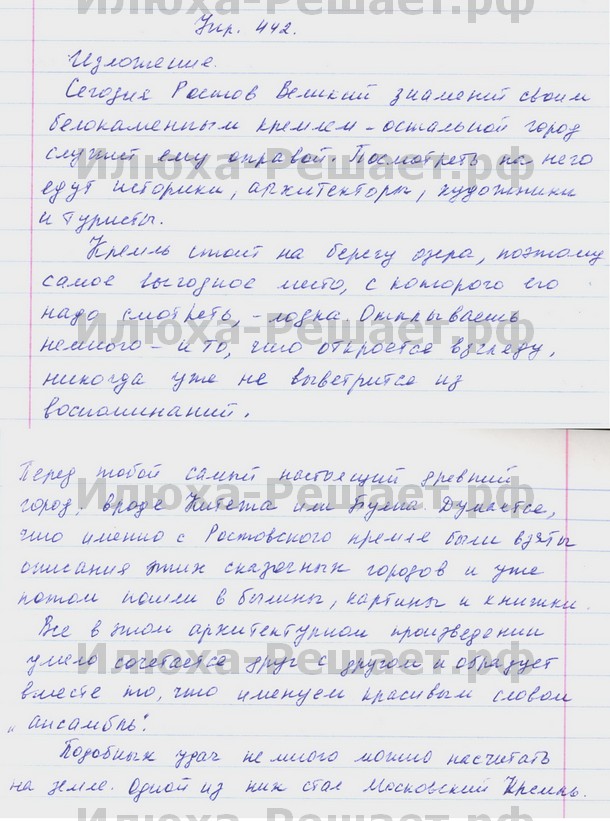 Упр. 442.
Изложение.
Сегодня Ростов Великий знаменит своим
белокаменным кремлем - остальной город
служит ему оправой. Посмотреть на него
едут историки, архитекторы, художники
и туристы.
Кремль стоит на берегу озера, поэтому
самое выгодное место, с которого его
надо смотреть, - лодка. Отплываешь
немного - и то, что откроется взгляду,
никогда уже не выветрится из
воспоминаний.
Перед тобой самый настоящий древний
город, вроде Китежа или Буяна. Думается,
что именно с Ростовского кремля были взяты
описания этих сказочных городов и уже
потом пошли в былины, картины и книжки.
Все в этом архитектурном произведении
умело сочетается друг с другом и образует
вместе то, что именуем красивым словом
"ансамбль".
Подобных удач немного можно насчитать
на земле. Одной из них стал Московский Кремль.
Илюха-Решает.рф
Илюха-Решает.рф
Илюха-Решает.рф
Илюха-Решает.рф
Илюха-Решает.рф
Илюха-Решает.рф